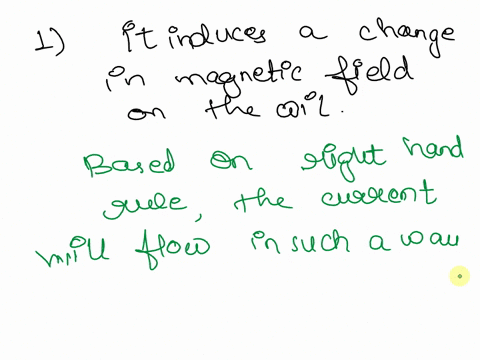 1) it induces a change
in magnetic field
on the coil.
Based on right hand
rule, the current
will flow in such a way